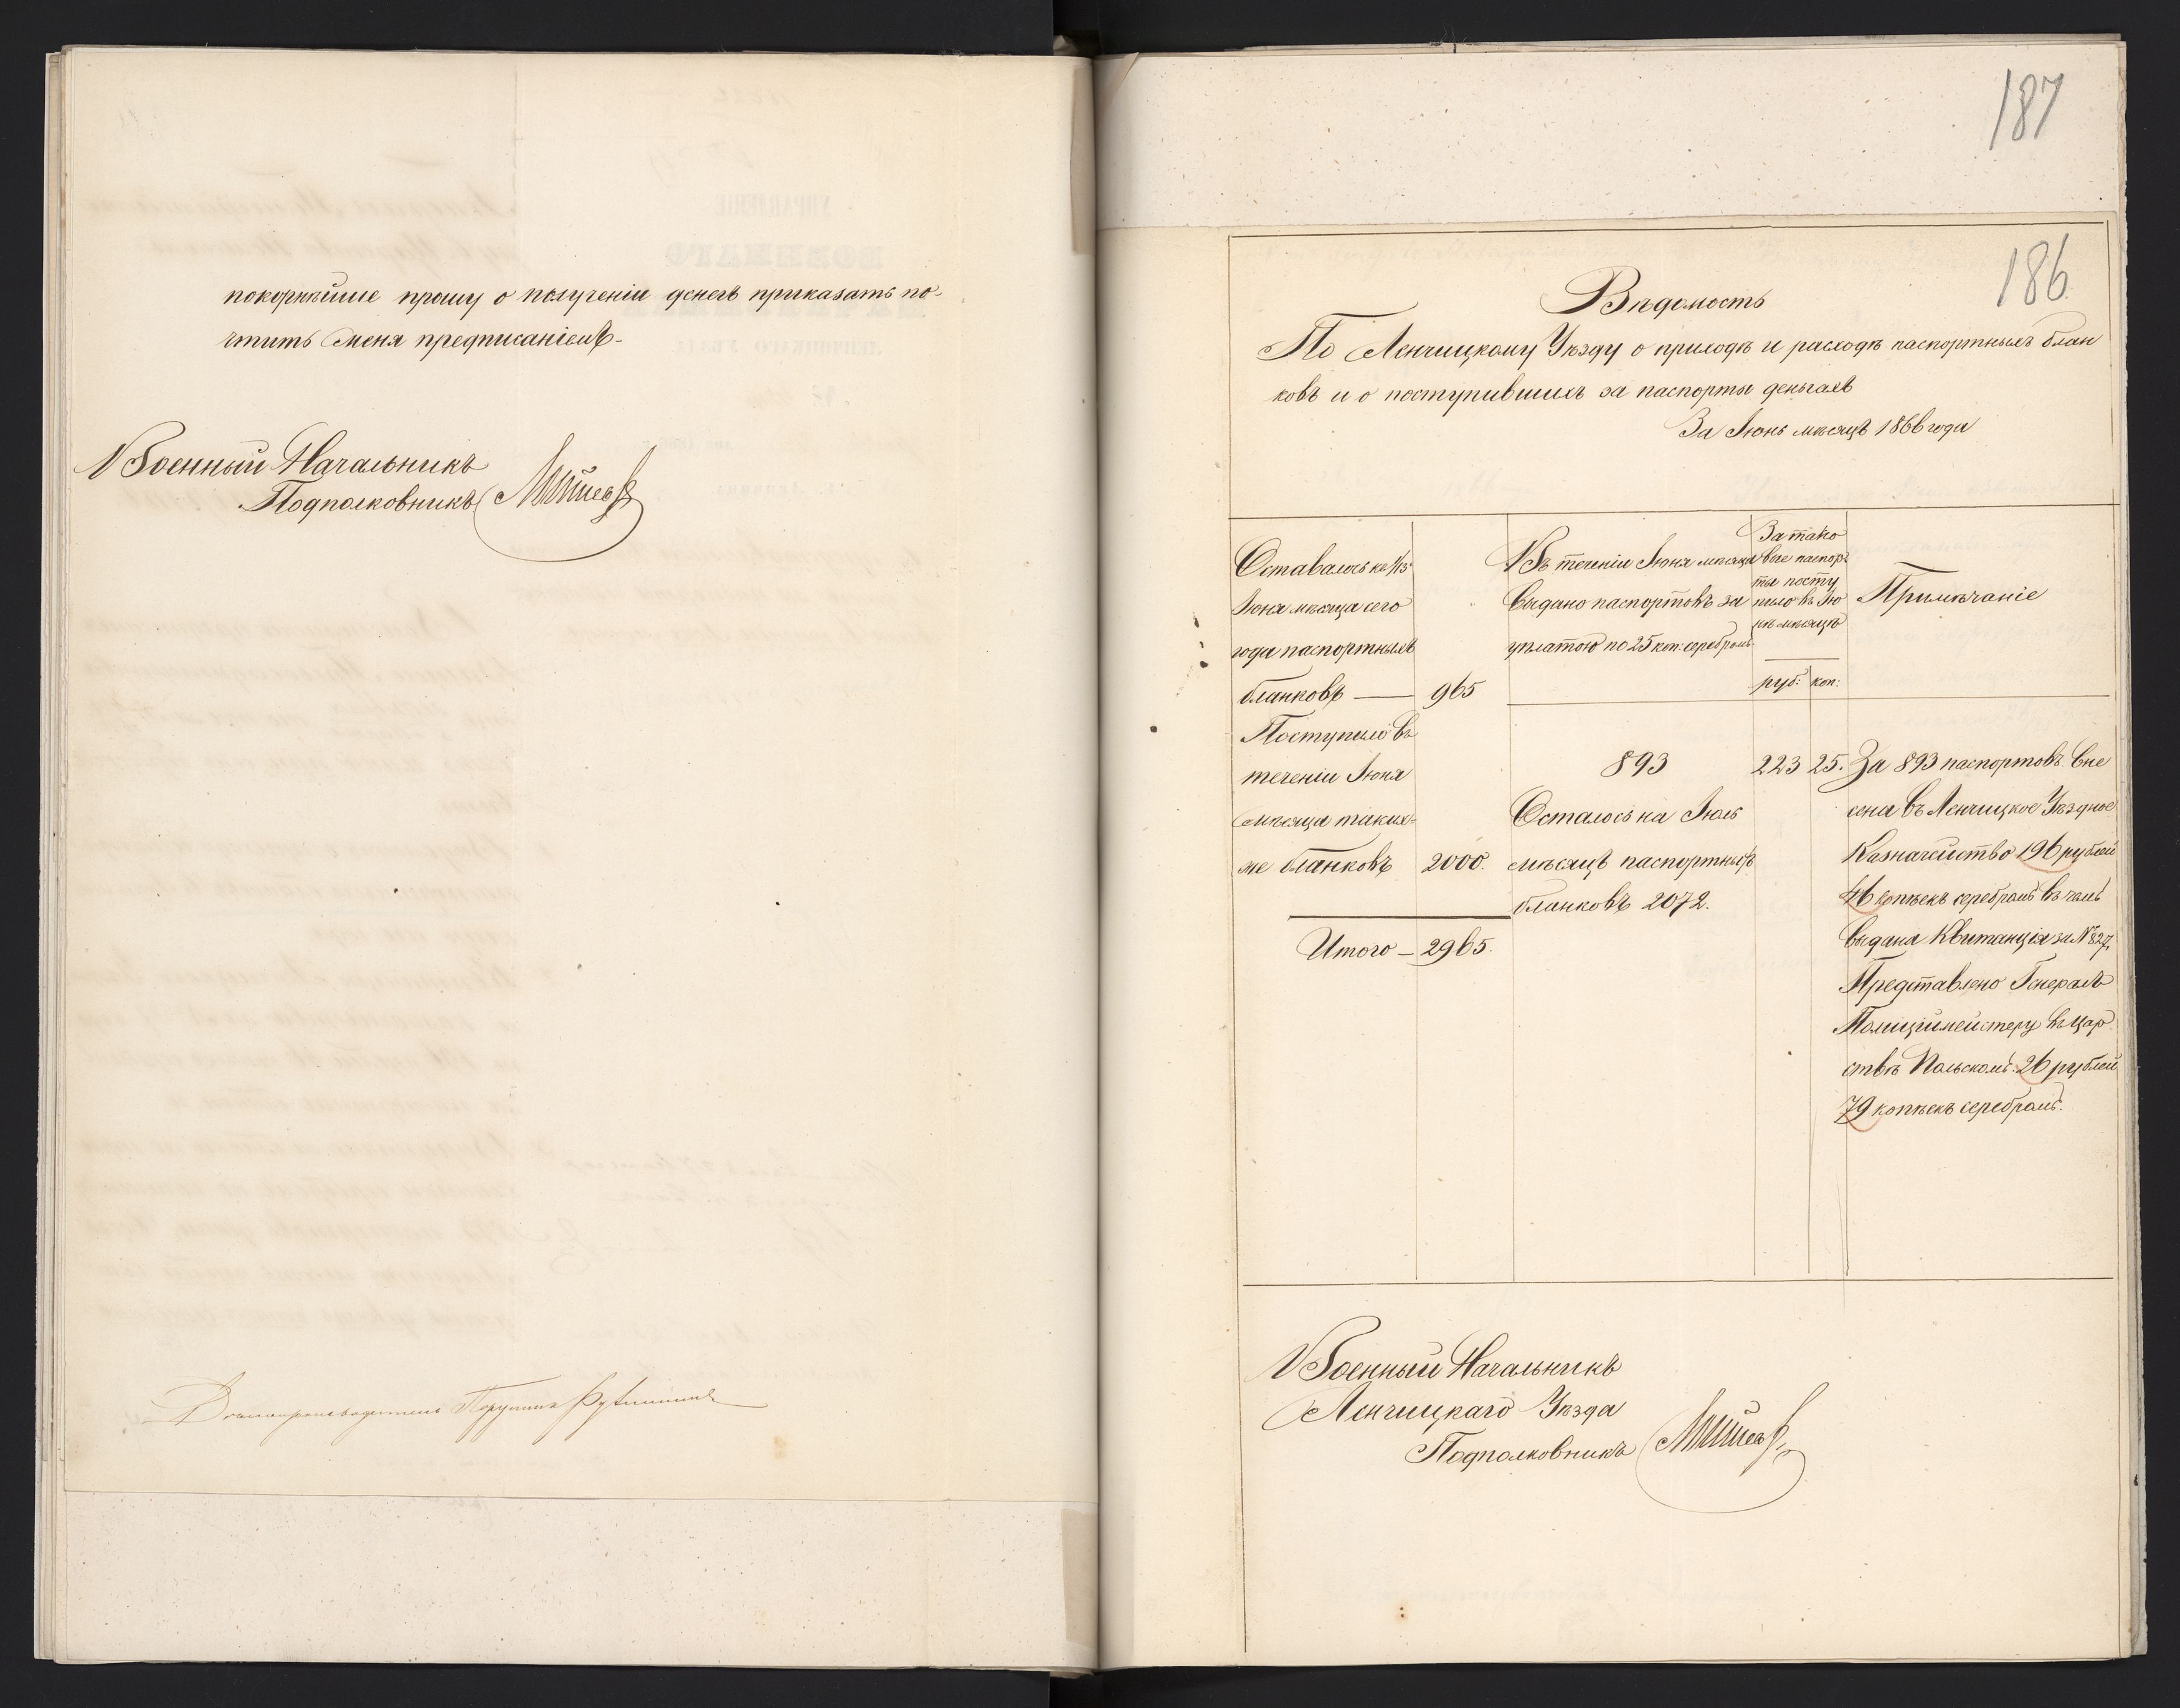 покорнѣйше прошу о полученіи денегъ приказать по-
чтить меня предписаніемъ.
Военный Начальникъ
Подполковникъ
Дѣлопроизводитель Поручикъ
187
186
Вѣдомость
По Ленчицкому Уѣзду о приходѣ и расходѣ паспортныхъ блан
ковъ и о поступившихъ за паспорты деньгахъ
За Іюнь мѣсяцъ 1866 года
Оставалось къ 1/13
Іюня мѣсяца сего
года паспортныхъ
бланковъ — 965
Поступило въ
теченіи Іюня
мѣсяца таких-
же бланковъ 2000.
Итого — 2965.
Въ теченіи Іюня мѣсяца
выдано паспортовъ за
уплатою по 25 коп: серебромъ
893
Осталось на Іюль
мѣсяцъ паспортныхъ
бланковъ 2072.
За тако
вые паспор
ты посту
пило въ Ію
нѣ мѣсяцѣ
руб: коп:
223 25.
Примѣчаніе
За 893 паспортовъ вне
сена въ Ленчицкое Уѣздное
Казначейство 196 рублей
46 копѣекъ серебромъ въ чемъ
выдана Квитанція за № 827,
Представлено Генералъ
Полиціймейстеру въ Цар
ствѣ Польскомъ 26 рублей
79 копѣекъ серебромъ.
Военный Начальникъ
Ленчицкаго Уѣзда
Подполковникъ